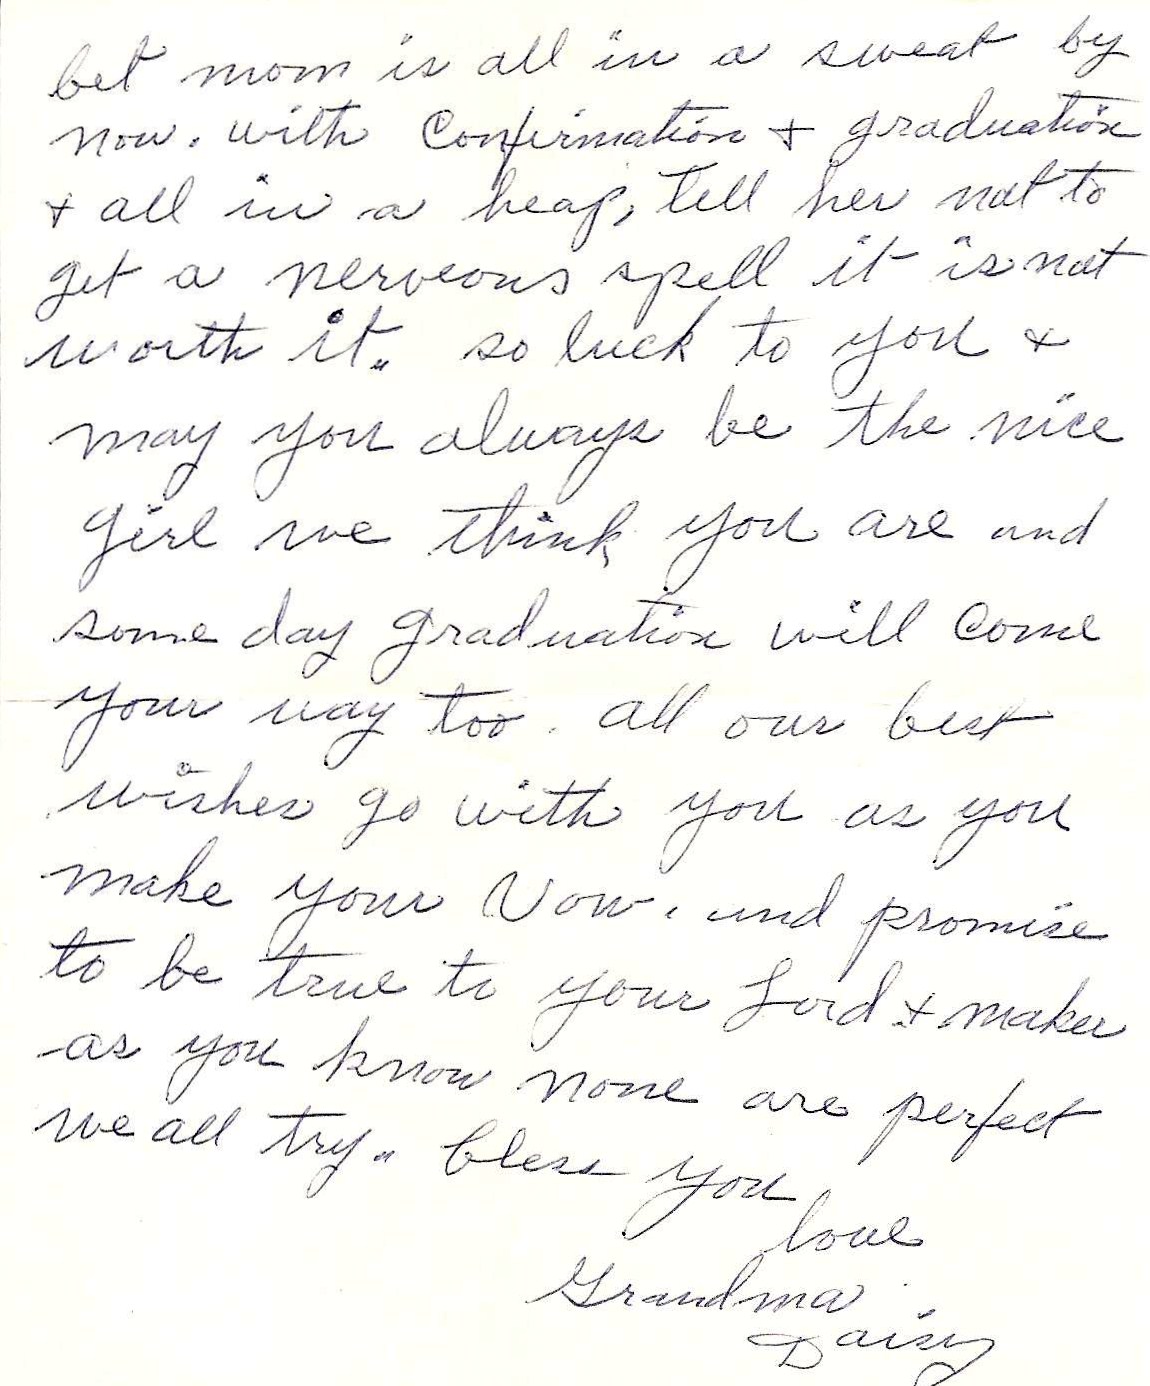 bet mom is all in a sweat by
now. with Confirmation + graduation
+ all in a heap, tell her not to
get a nerveous spell it is not
worth it.. so luck to you +
may you always be the nice
girl we think you are and
some day graduation will come
your way too. all our best
wishes go with you as you
make your Vow. and promise
to be true to your Lord + maker
as you know none are perfect
we all try.. bless you
love
Grandma
Daisy